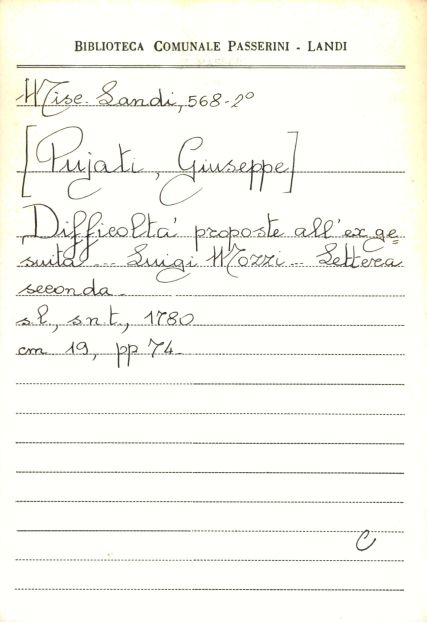 BIBLIOTECA COMUNALE PASSERINI - LANDI
Misc. Landi, 568-2°
[Pujati, Giuseppe]
Difficolta' proposte all'ex ge=
suita ... Luigi Mozzi ... Lettera
seconda.
s.l., s.n.t., 1780
cm. 19, pp 74.
C